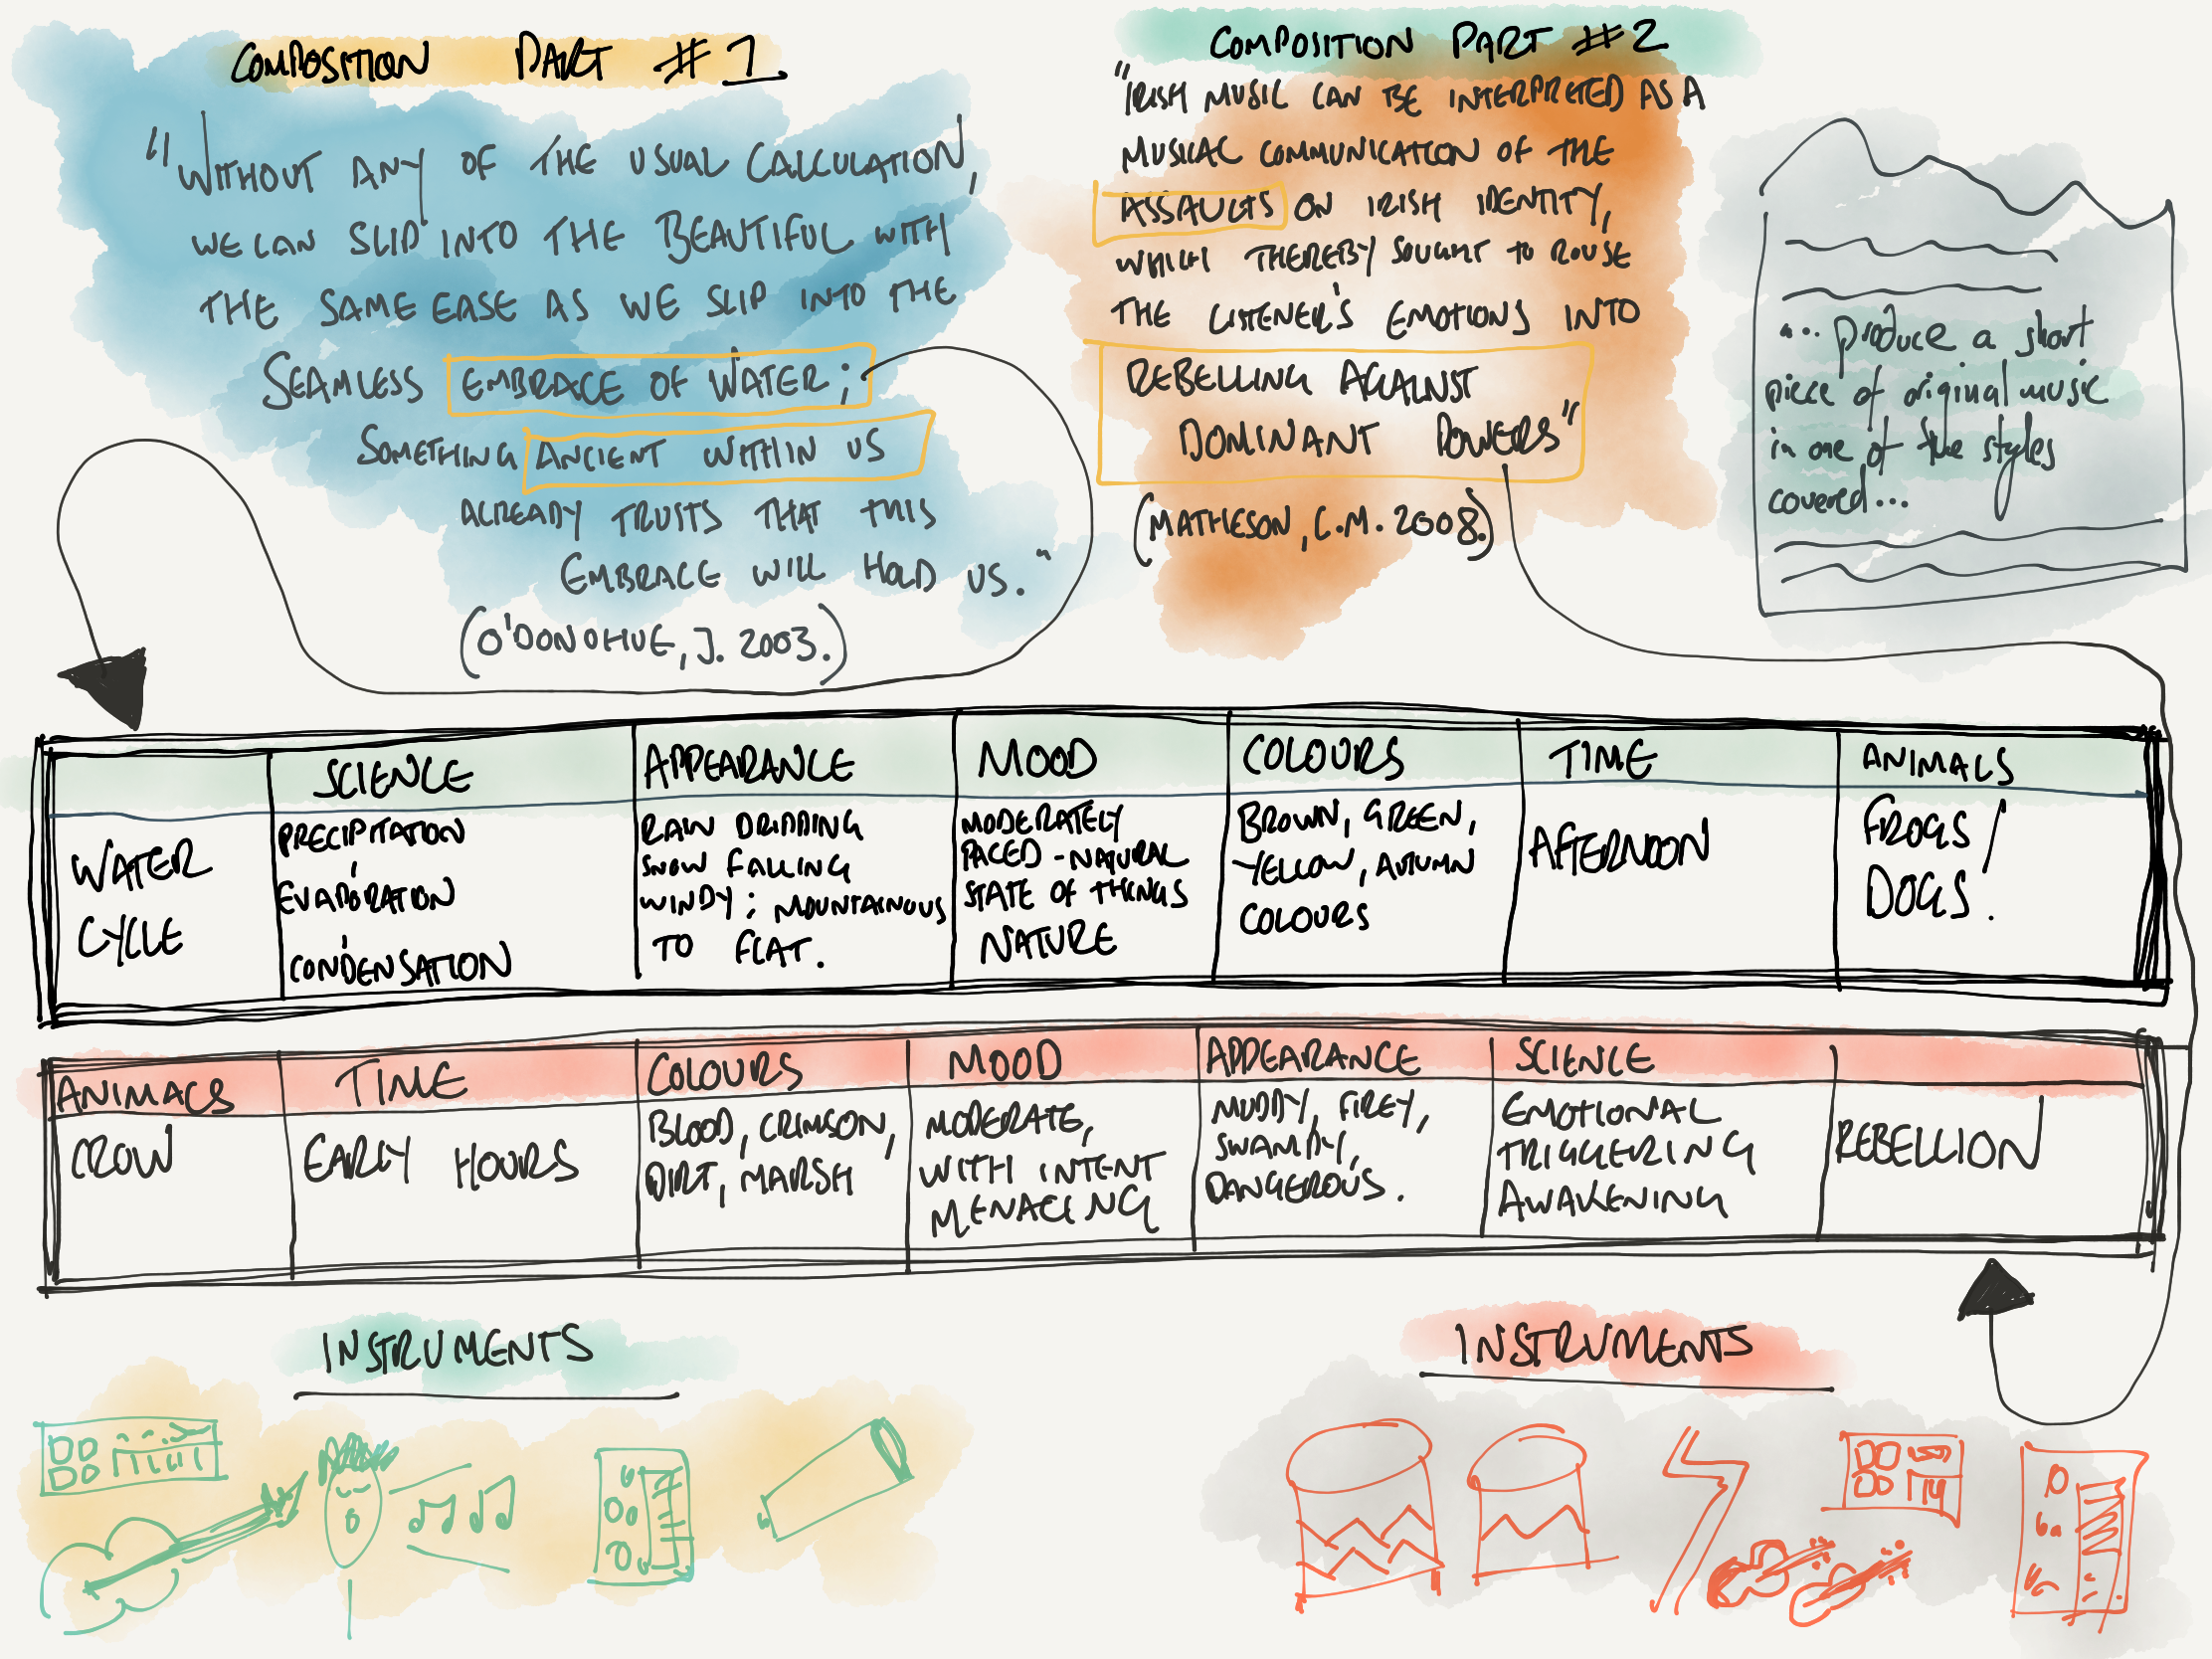 COMPOSITION PART #1
"WITHOUT ANY OF THE USUAL CALCULATION,
WE CAN SLIP INTO THE BEAUTIFUL WITH
THE SAME EASE AS WE SLIP INTO THE
SEAMLESS EMBRACE OF WATER;
SOMETHING ANCIENT WITHIN US
ALREADY TRUSTS THAT THIS
EMBRACE WILL HOLD US."
(O'DONOHUE, J. 2003.)
COMPOSITION PART #2
"IRISH MUSIC CAN BE INTERPRETED AS A
MUSICAL COMMUNICATION OF THE
ASSAULTS ON IRISH IDENTITY,
WHICH THEREBY SOUGHT TO ROUSE
THE LISTENER'S EMOTIONS INTO
REBELLING AGAINST
DOMINANT POWERS"
(MATHESON, C.M. 2008.)
"... produce a short
piece of original music
in one of the styles
covered...
SCIENCE
APPEARANCE
MOOD
COLOURS
TIME
ANIMALS
WATER
CYCLE
PRECIPITATION
EVAPORATION
CONDENSATION
RAIN DRIPPING
SNOW FALLING
WINDY; MOUNTAINOUS
TO FLAT.
MODERATELY
PACED - NATURAL
STATE OF THINGS
NATURE
BROWN, GREEN,
YELLOW, AUTUMN
COLOURS
AFTERNOON
FROGS/
DOGS.
ANIMALS
TIME
COLOURS
MOOD
APPEARANCE
SCIENCE
CROW
EARLY HOURS
BLOOD, CRIMSON,
DIRT, MARSH
MODERATE,
WITH INTENT
MENACING
MUDDY, FIREY,
SWAMPY,
DANGEROUS.
EMOTIONAL
TRIGGERING
AWAKENING
REBELLION
INSTRUMENTS
INSTRUMENTS